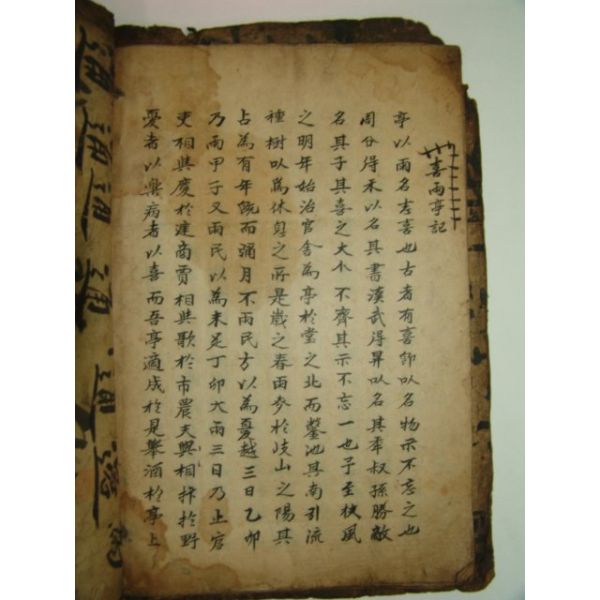 喜雨亭記
亭以雨名志喜也古者有喜即以名物示不忘之也
周公得禾以名其書漢武得鼎以名其年叔孫勝敵
名其子其喜之大小不齊其示不忘一也予至扶風
之明年始治官舍為亭於堂之北而鑿池其南引流
種樹以為休息之所是歲之春雨麥於岐山之陽其
占為有年既而彌月不雨民方以為憂越三日乙卯
乃雨甲子又雨民以為未足丁卯大雨三日乃止官
吏相與慶於建商賈相與歌於市農夫與相抃於野
愛者以樂病者以喜而吾亭適成於是舉酒於亭上